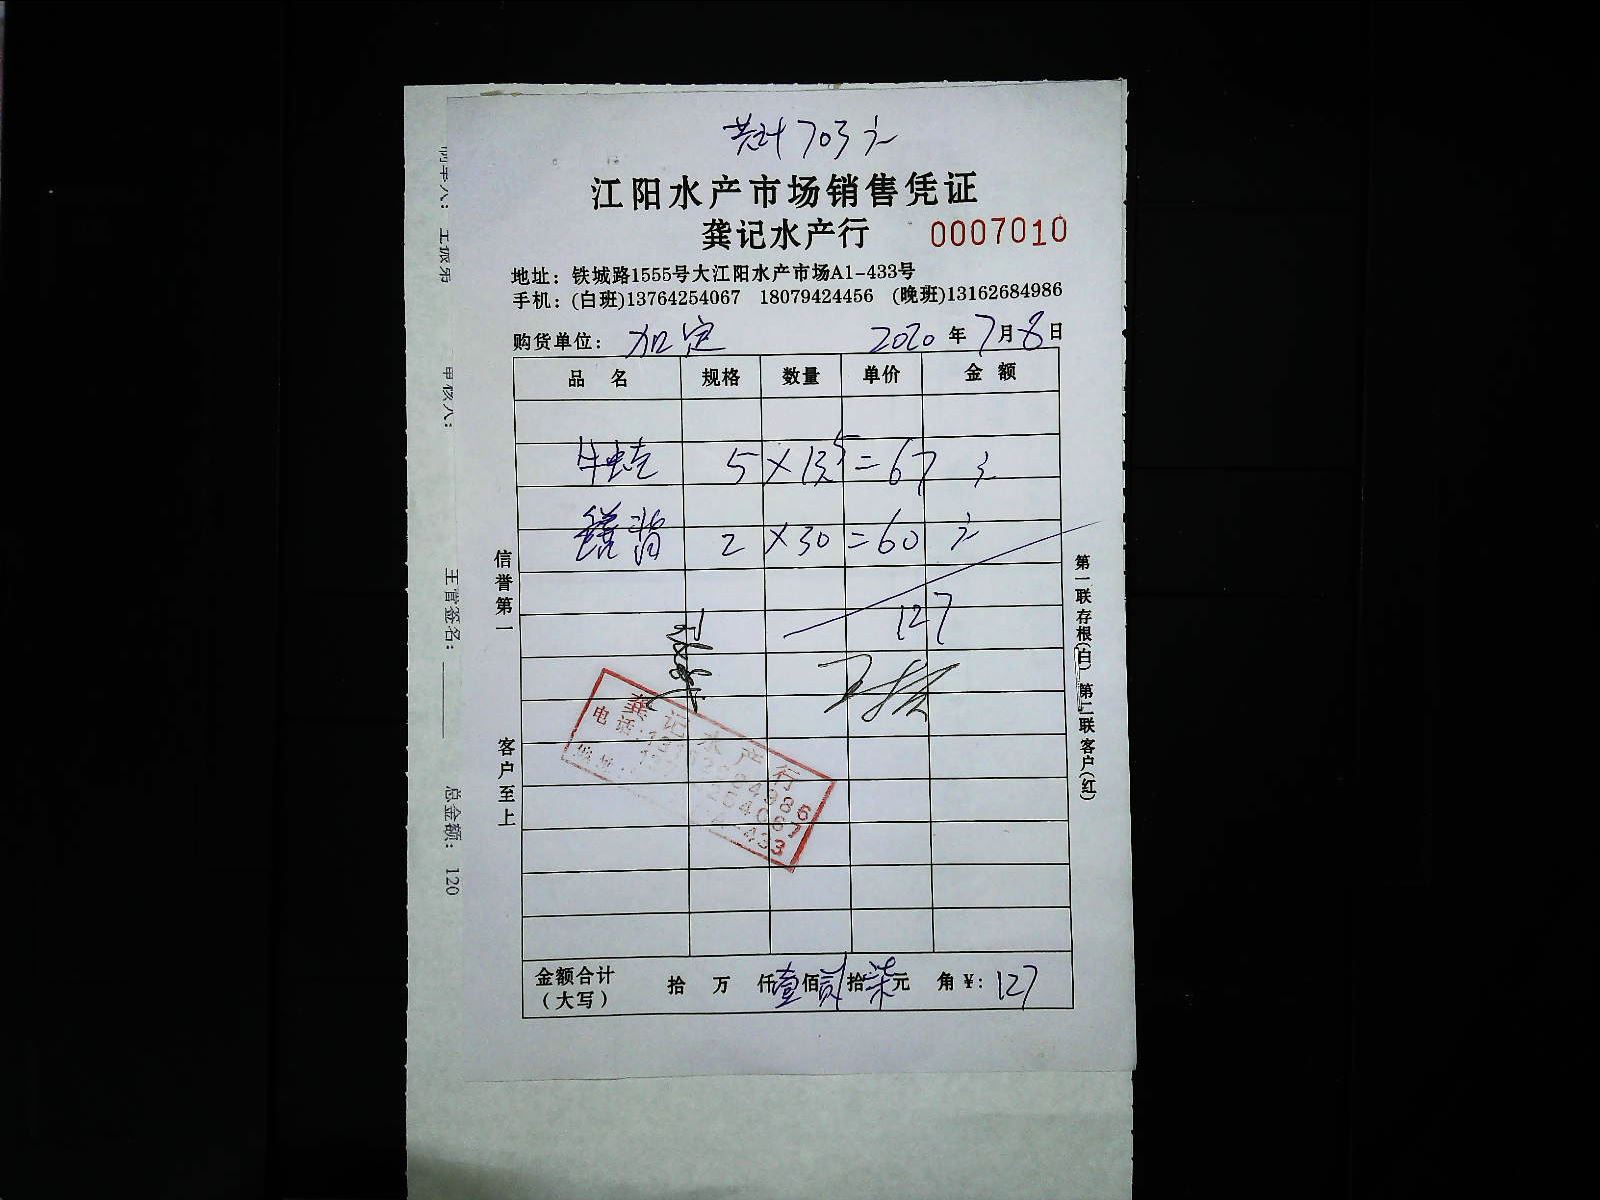 共计703元
江阳水产市场销售凭证
龚记水产行 0007010
地址：铁城路1555号大江阳水产市场A1-433号
手机：(白班)13764254067 18079424456 (晚班)13162684986
购货单位：加定 2020年7月8日
品名 规格 数量 单价 金额
牛蛙 5×13.5=67元
鳝背 2×30=60元
127
龚记水产行
电话:13162684986
13764254067
433
金额合计（大写） 拾 万 仟壹佰贰拾柒元 角 ¥: 127
信誉第一
客户至上
第一联存根(白) 第二联客户(红)
主管签名:
总金额: 120